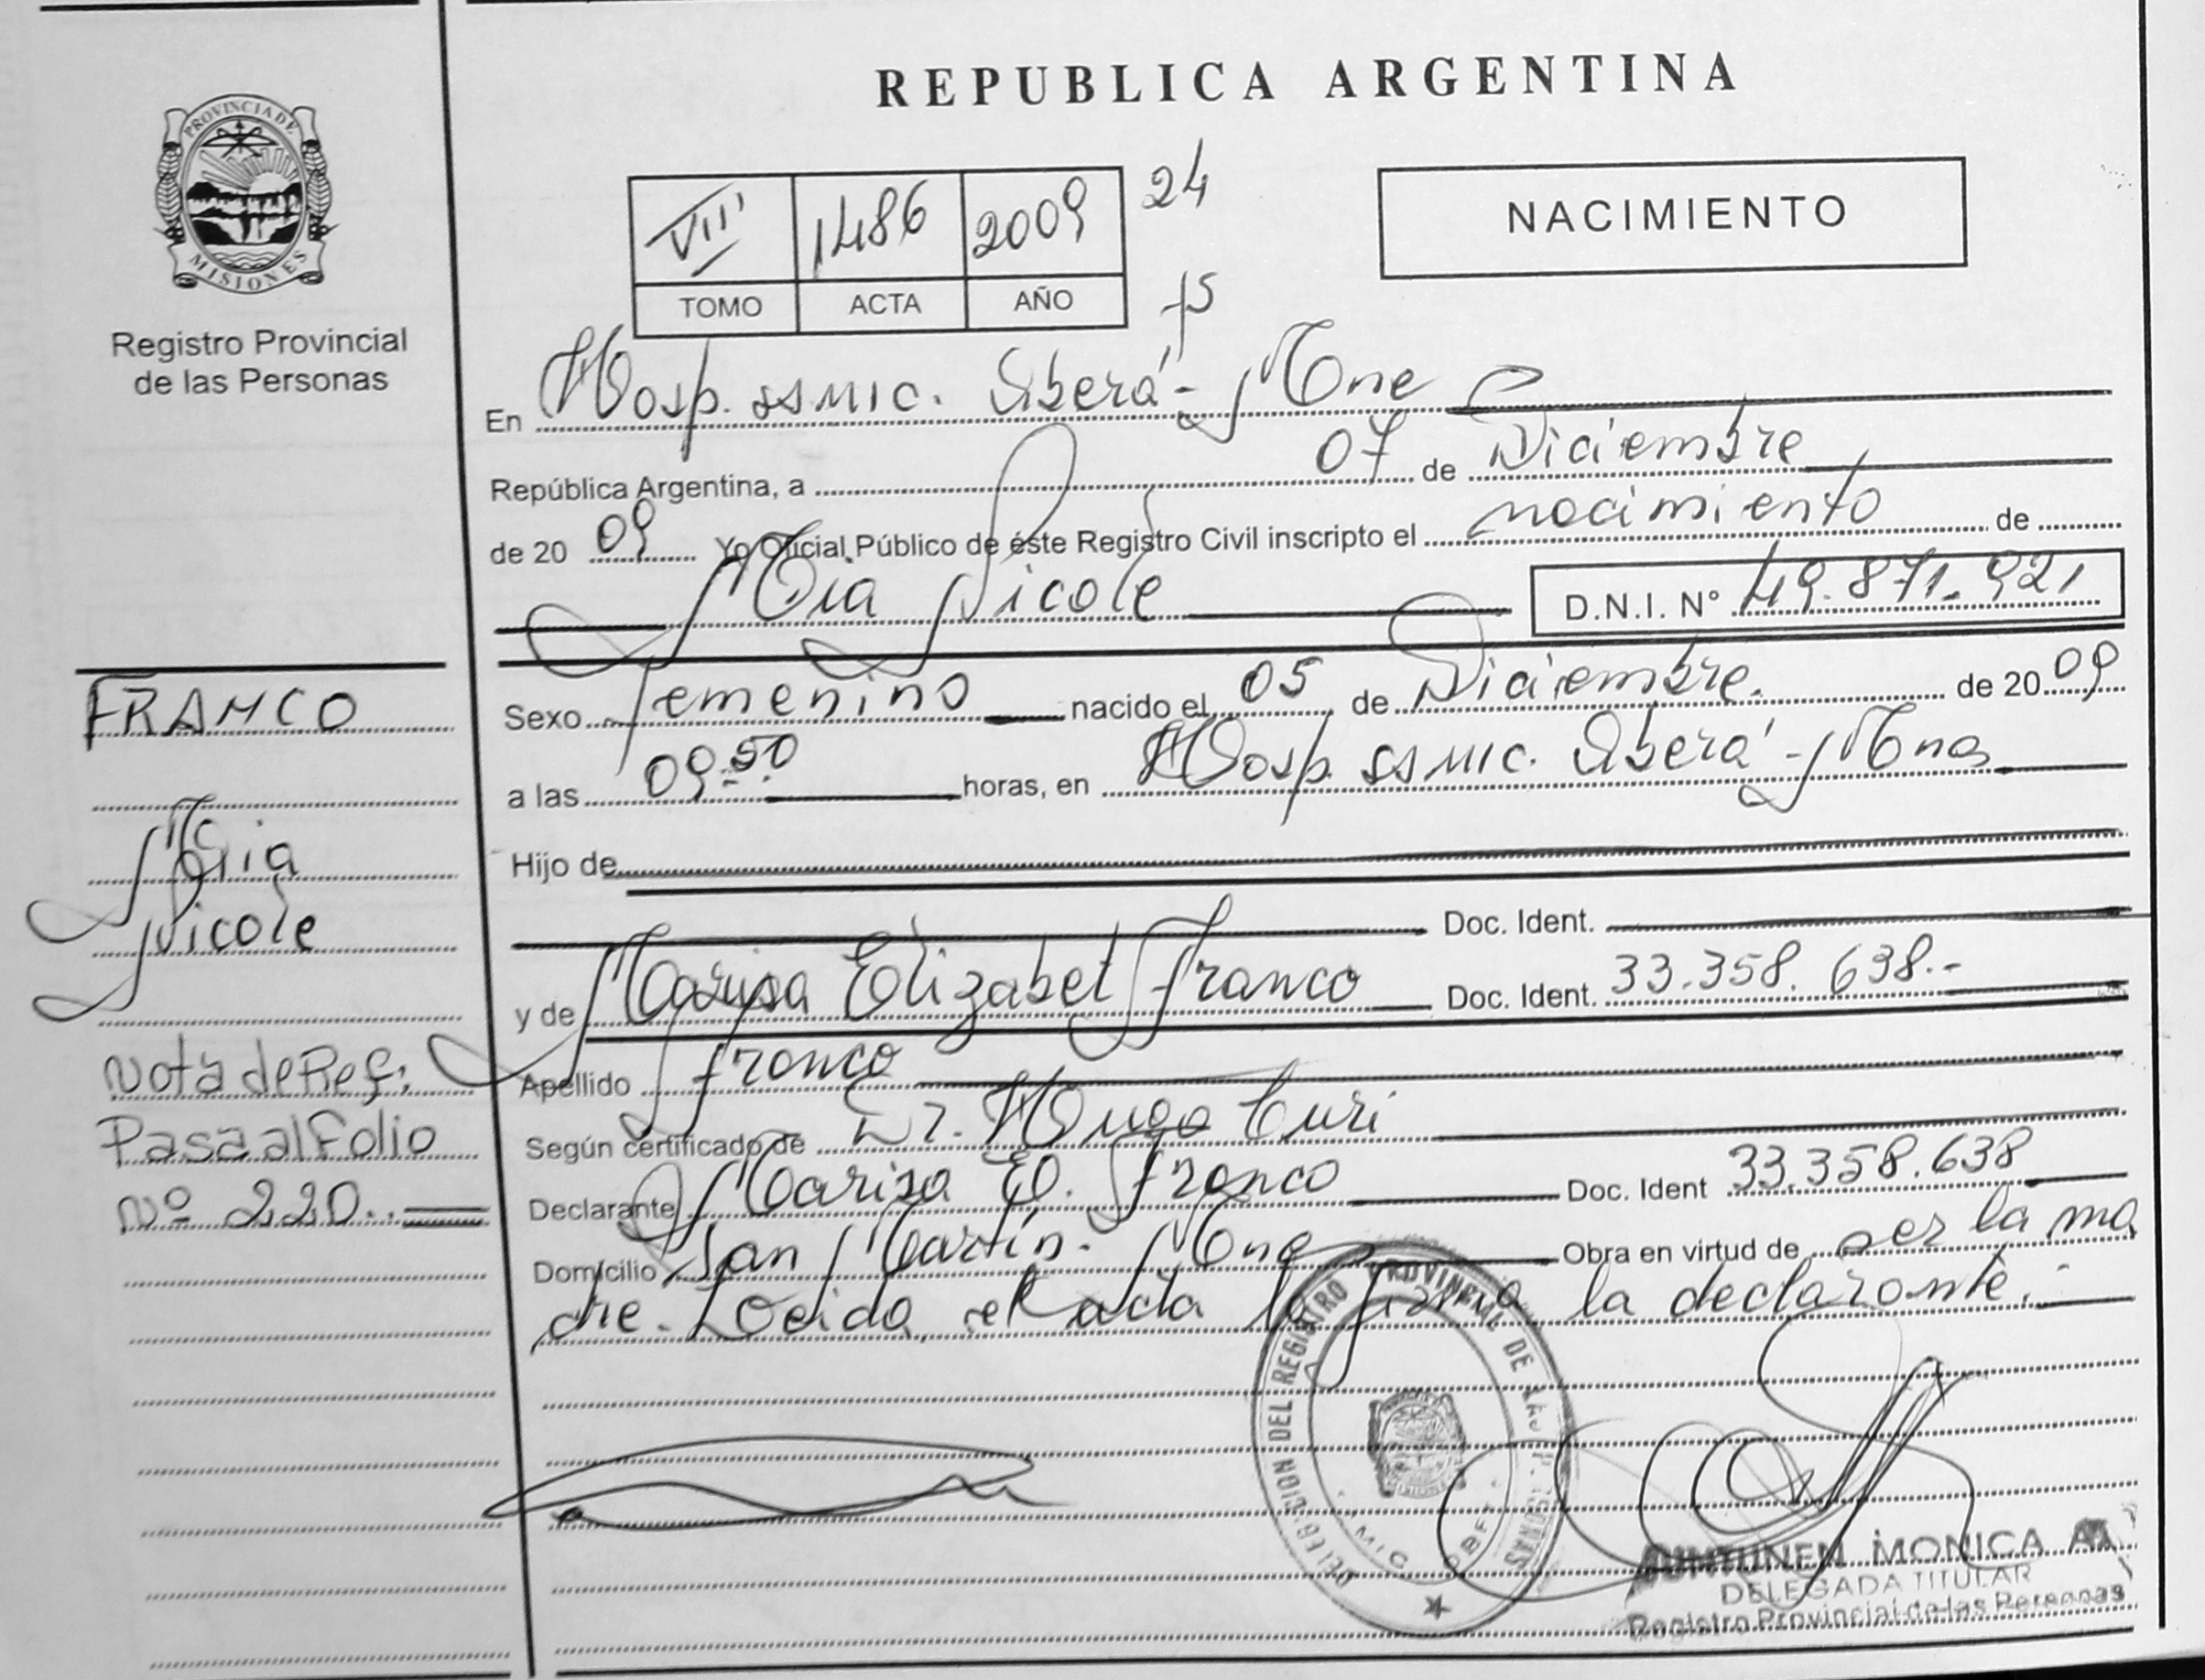 REPUBLICA ARGENTINA
PROVINCIA DE
MISIONES
Registro Provincial
de las Personas
VIII 1486 2009 24
TOMO ACTA AÑO
NACIMIENTO
En Hosp. SSMIC. Oberá - Mnes
República Argentina, a 07 de Diciembre
de 2009 Yo Oficial Público de éste Registro Civil inscripto el nacimiento de
Mia Nicole D.N.I. N° 49.871.921
FRANCO
Mia
Nicole
Nota de Ref:
Pasa al Folio
Nº 220.
Sexo femenino nacido el 05 de Diciembre. de 2009
a las 09:50 horas, en Hosp. SSMIC. Oberá - Mnes
Hijo de
Doc. Ident.
y de Marisa Elizabet Franco Doc. Ident. 33.358.638.-
Apellido Franco
Según certificado de Dr. Hugo Curi
Declarante Marisa E. Franco Doc. Ident 33.358.638
Domicilio San Martín. Mnes Obra en virtud de ser la ma
dre. Leída el acta la firma la declarante.
DELEGACION DEL REGISTRO PROVINCIAL DE LAS PERSONAS
MONICA
DELEGADA TITULAR
Registro Provincial de las Personas